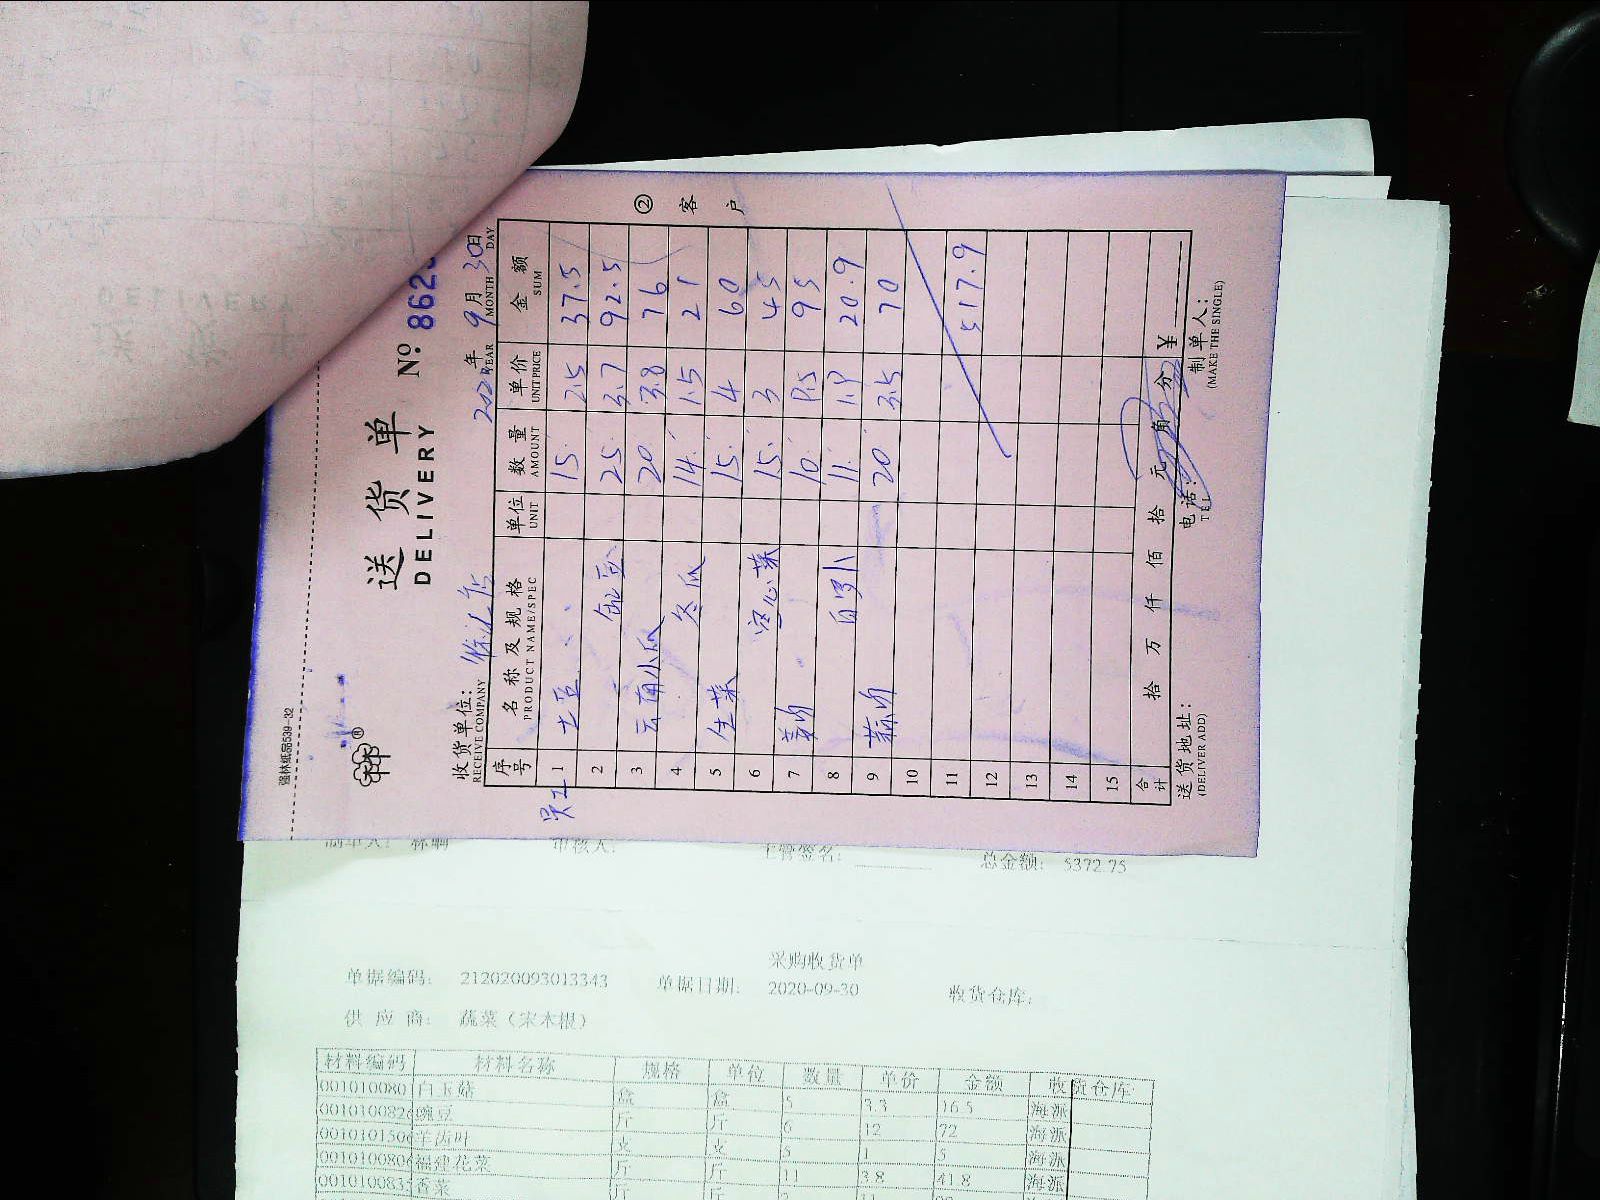 强林纸品539-32
送货单
DELIVERY
№ 862
收货单位:
RECEIVE COMPANY
年 9月30日
YEAR MONTH DAY
序号 名称及规格 单位 数量 单价 金额
PRODUCT NAME/SPEC UNIT AMOUNT UNIT PRICE SUM
1 土豆 15 2.5 37.5
2 25 3.7 92.5
3 云南小瓜 20 3.8 76
4 冬瓜 14 1.5 21
5 生菜 15 4 60
6 空心菜 15 3 45
7 10 9.5 95
8 11 1.9 20.9
9 20 3.5 70
10
11 517.9
12
13
14
15
合计 拾 万 仟 佰 拾 元 角 分 ¥
送货地址: 电话: 制单人:
(DELIVER ADD) TEL (MAKE THE SINGLE)
② 客户
制单人: 审核人: 主管签名: 总金额: 5372.75
采购收货单
单据编码: 212020093013343 单据日期: 2020-09-30 收货仓库:
供应商: 蔬菜(宋木根)
材料编码 材料名称 规格 单位 数量 单价 金额 收货仓库
001010080 白玉菇 盒 盒 5 3.3 16.5 海派
001010082 豌豆 斤 斤 6 12 72 海派
001010150 羊齿叶 支 支 5 1 5 海派
001010080 福建花菜 斤 斤 11 3.8 41.8 海派
001010083 香菜 斤 斤